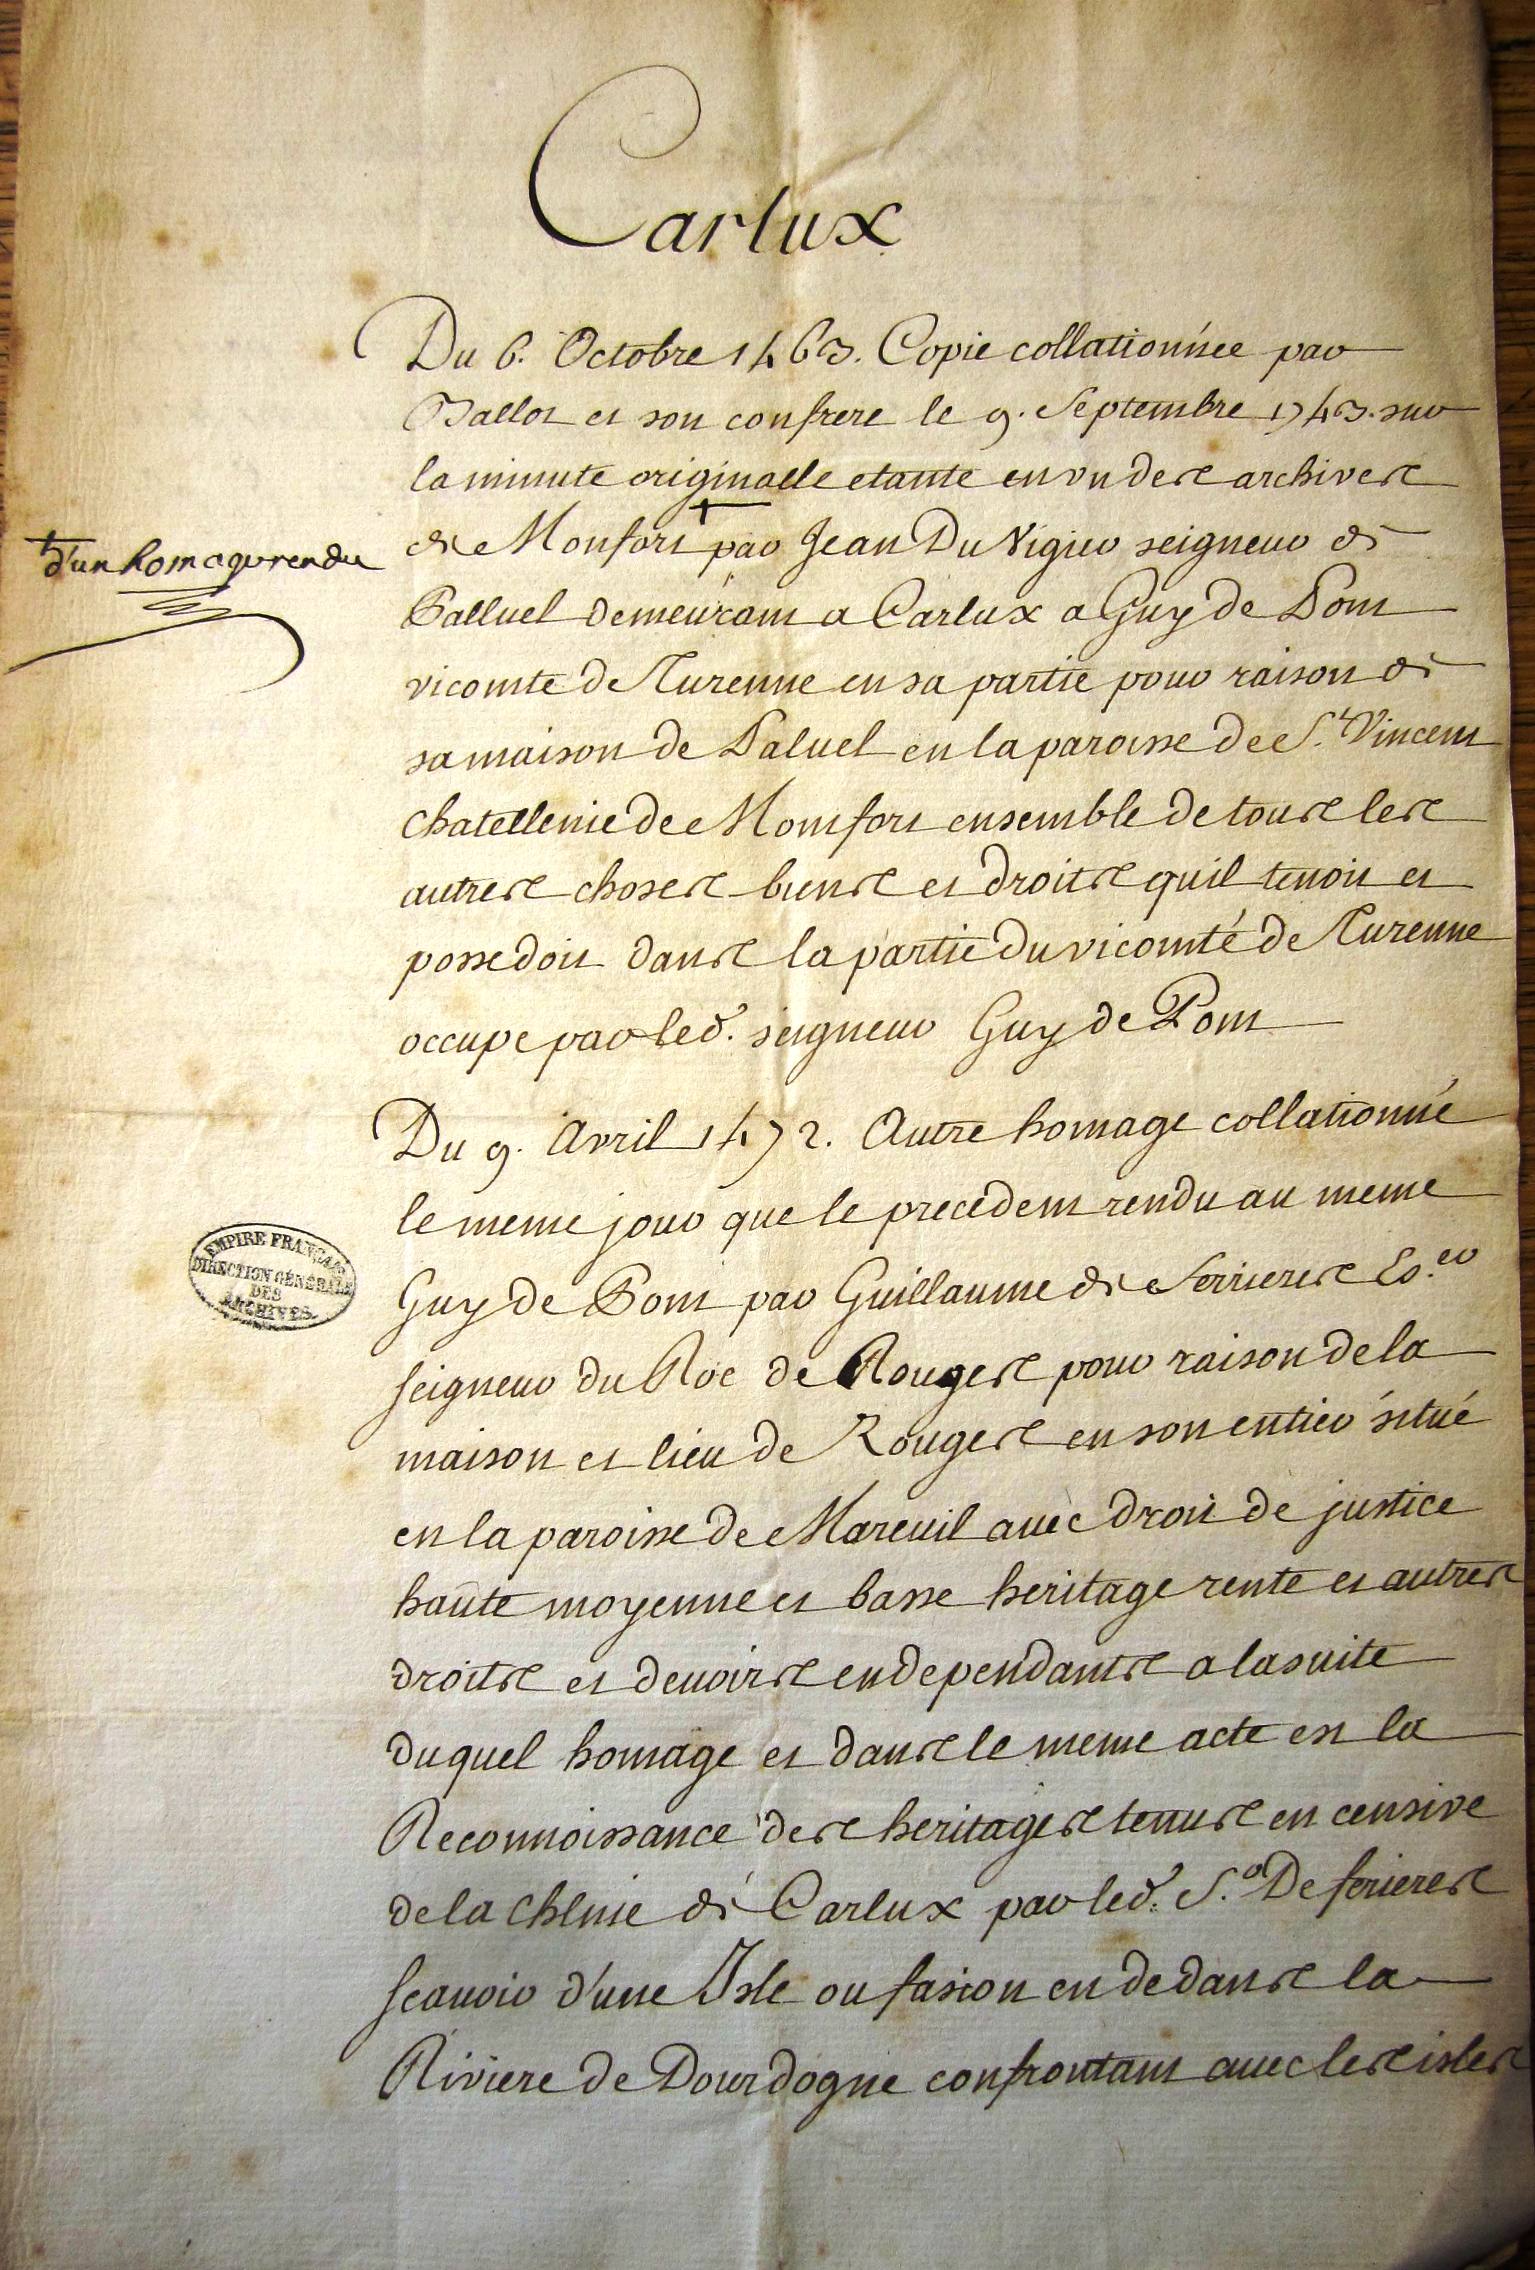 Carlux
Du 6. Octobre 1463. Copie collationnée par
Ballot et son confrere le 9. Septembre 1743. sur
la minute originalle etante en un des archives
de Monfort + par Jean Du Vigier seigneur de
+ d'un homage rendu
Palluel demeurant a Carlux a Guy de Pont
vicomte de Turenne en sa partie pour raison de
sa maison de Paluel en la paroisse de St. Vincent
chatellenie de Momfort ensemble de tous les
autres choses biens et droits quil tenoit et
possedoit dans la partie du vicomté de Turenne
occupe par led. seigneur Guy de Pont
Du 9. Avril 1472. Autre homage collationné
le meme jour que le precedent rendu au meme
Guy de Pont par Guillaume de Ferrieres Es.er
seigneur du Roc de Rouges pour raison de la
maison et lieu de Rouges en son entier situé
en la paroisse de Mareuil avec droit de justice
haute moyenne et basse heritage rente et autres
droits et devoirs en dependants a la suite
duquel homage et dans le meme acte est la
Reconnoissance des heritages tenus en censive
de la chlnie de Carlux par led. S.r De ferieres
scavoir d'une Isle ou fasion en dedans la
Riviere de Dourdogne confrontant avec les isles
EMPIRE FRANÇAIS
DIRECTION GÉNÉRALE
DES
ARCHIVES